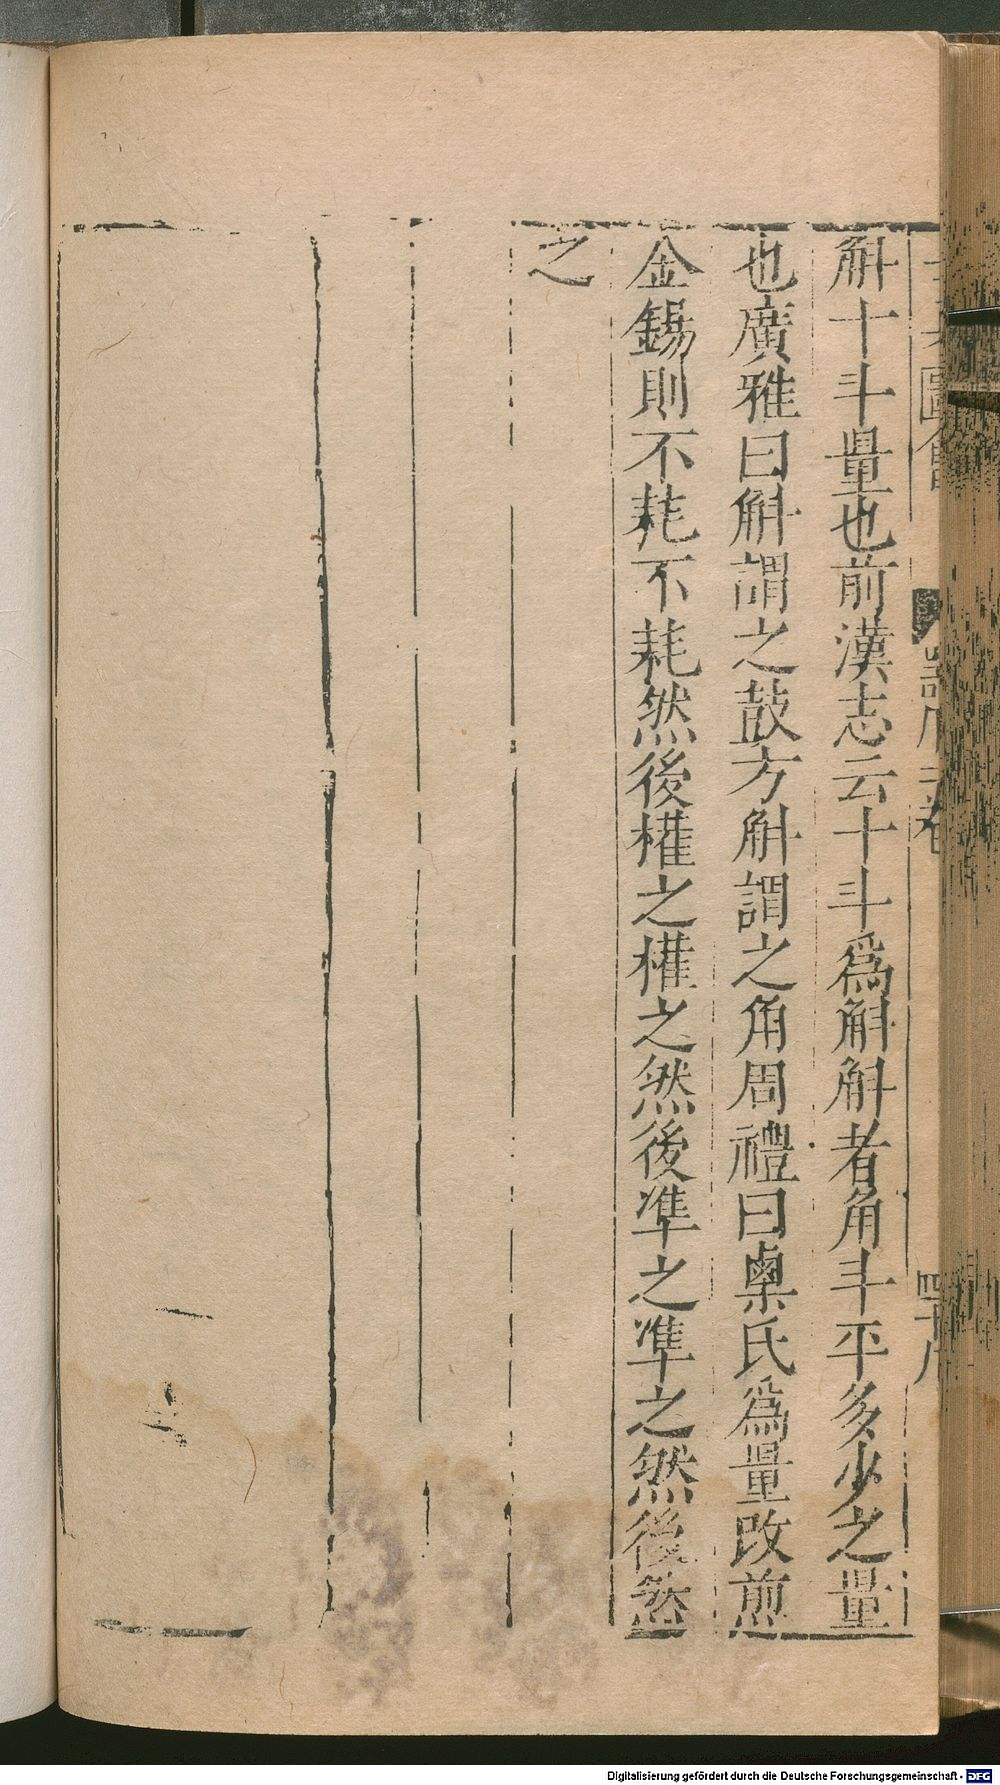 斛十斗量也前漢志云十斗爲斛斛者角斗平多少之量
也廣雅曰斛謂之鼓方斛謂之角周禮曰㮚氏爲量改煎
金錫則不耗不耗然後權之權之然後準之準之然後
之
Digitalisierung gefördert durch die Deutsche Forschungsgemeinschaft - DFG